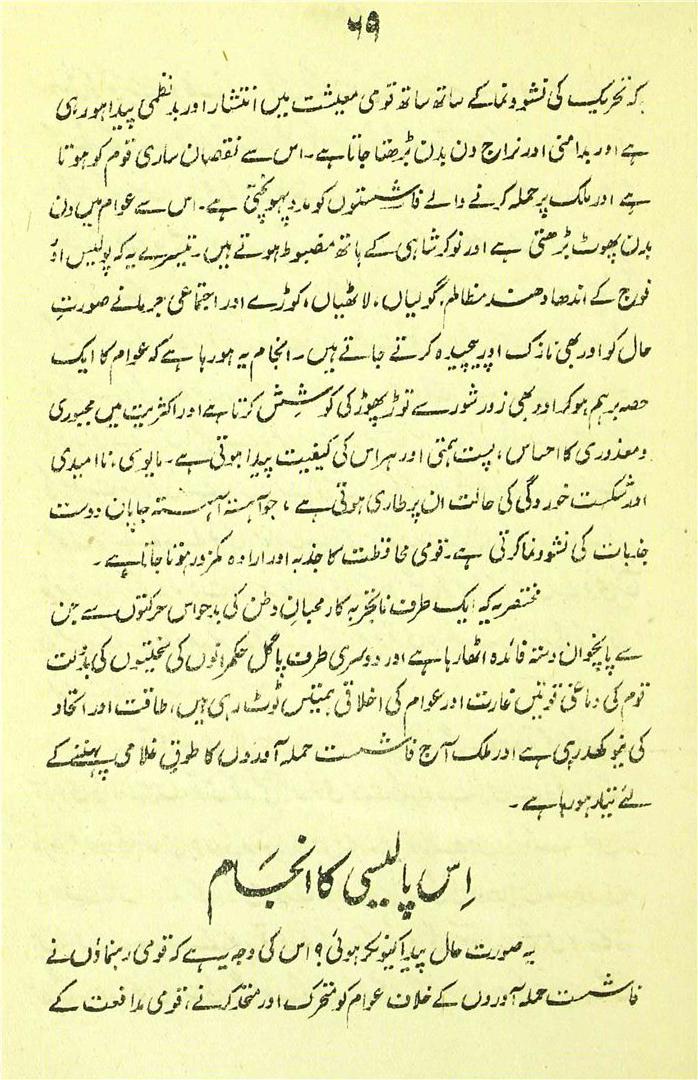 ۵۹
کہ تحریک کی نشوونما کے ساتھ ساتھ قومی معیشت میں انتشار اور بدنظمی پیدا ہو رہی
ہے اور بدامنی اور نراج دن بدن بڑھتا جاتا ہے۔ اس سے نقصان ساری قوم کو ہوتا
ہے اور ملک پر حملہ کرنے والے فاشستوں کو مدد پہونچتی ہے۔ اس سے عوام میں دن
بدن پھوٹ بڑھتی ہے اور نوکر شاہی کے ہاتھ مضبوط ہوتے ہیں۔ تیسرے یہ کہ پولیس اور
فوج کے اندھا دھند مظالم، گولیاں، لاٹھیاں، کوڑے اور اجتماعی جرمانے صورتِ
حال کو اور بھی نازک اور پیچیدہ کرتے جاتے ہیں۔ انجام یہ ہو رہا ہے کہ عوام کا ایک
حصہ برہم ہو کر اور بھی زور شور سے توڑ پھوڑ کی کوشش کرتا ہے اور اکثریت میں مجبوری
و معذوری کا احساس، پست ہمتی اور ہراس کی کیفیت پیدا ہوتی ہے۔ مایوسی، ناامیدی
اور شکست خوردگی کی حالت ان پر طاری ہوتی ہے، جو آہستہ آہستہ جاپان دوست
جذبات کی نشوونما کرتی ہے۔ قومی محافظت کا جذبہ اور ارادہ کمزور ہوتا جاتا ہے۔
مختصر یہ کہ ایک طرف ناتجربہ کار محبانِ وطن کی بدحواس حرکتوں سے جن
سے پانچواں دستہ فائدہ اٹھا رہا ہے اور دوسری طرف پاگل حکمرانوں کی سختیوں کی بدولت
قوم کی دماغی قوتیں غارت اور عوام کی اخلاقی ہمتیں ٹوٹ رہی ہیں، طاقت اور اتحاد
کی نیو کھد رہی ہے اور ملک آج فاشست حملہ آوروں کا طوقِ غلامی پہننے کے
لئے تیار ہو رہا ہے۔
اِس پالیسی کا انجام
یہ صورت حال پیدا کیونکر ہوئی؟ اس کی وجہ یہ ہے کہ قومی رہنماؤں نے
فاشست حملہ آوروں کے خلاف عوام کو متحرک اور متحد کرنے، قومی مدافعت کے